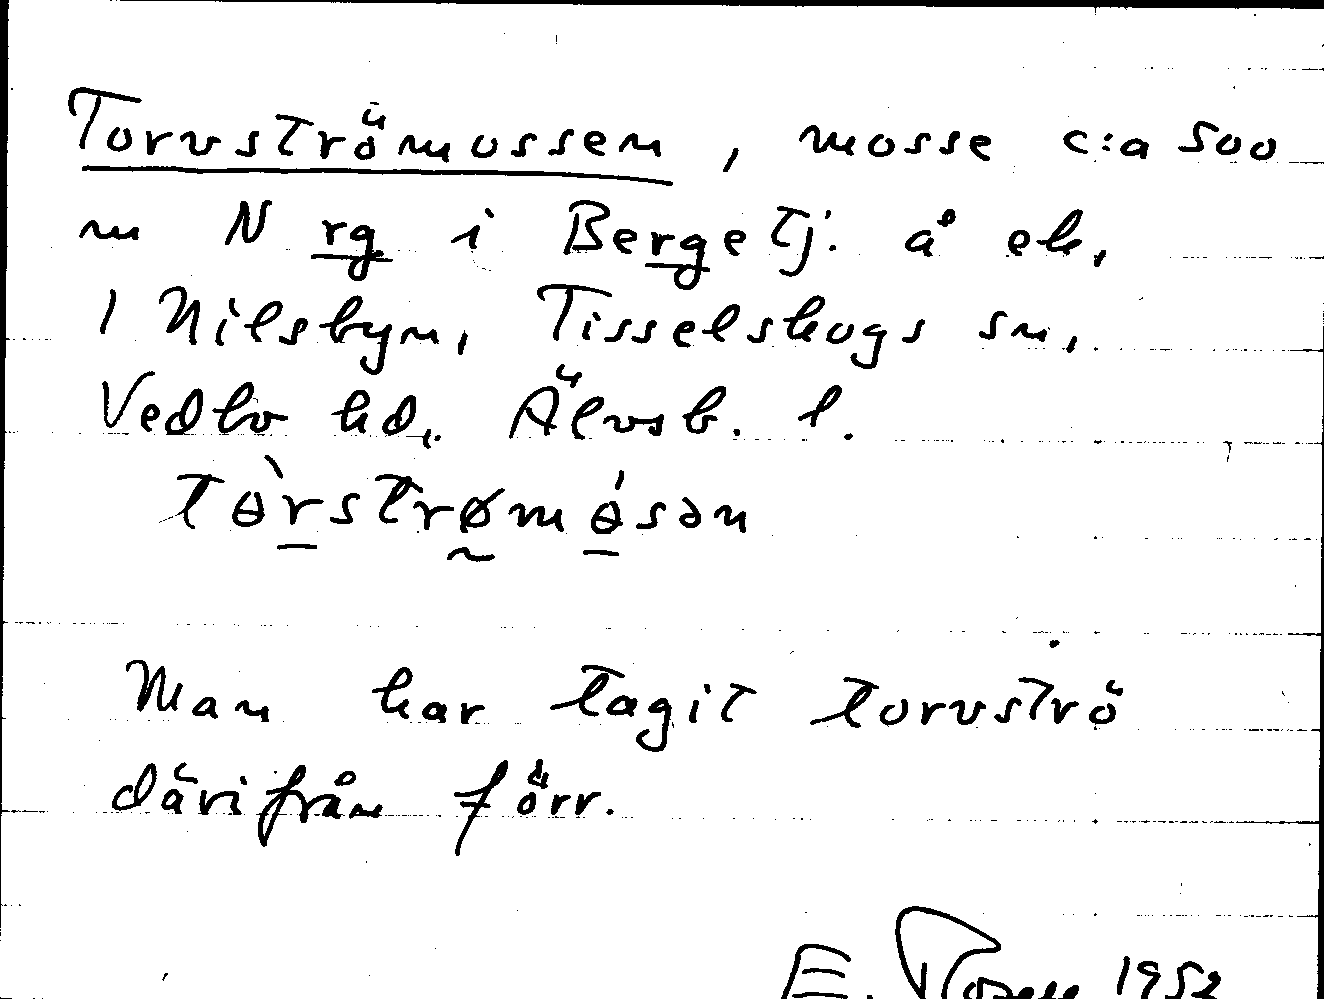 Torvströmossen, mosse c:a 500
m N rg i Bergetj. å ek.
1 Nilsbyn, Tisselskogs sn,
Vedbo hd, Älvsb. l.
tɵ̀rstrømɵ́sən
Man har tagit torvströ
därifrån förr.
E. Rosell 1952